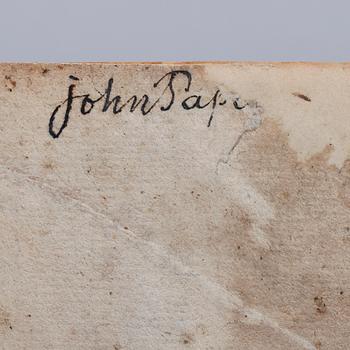 john Pap